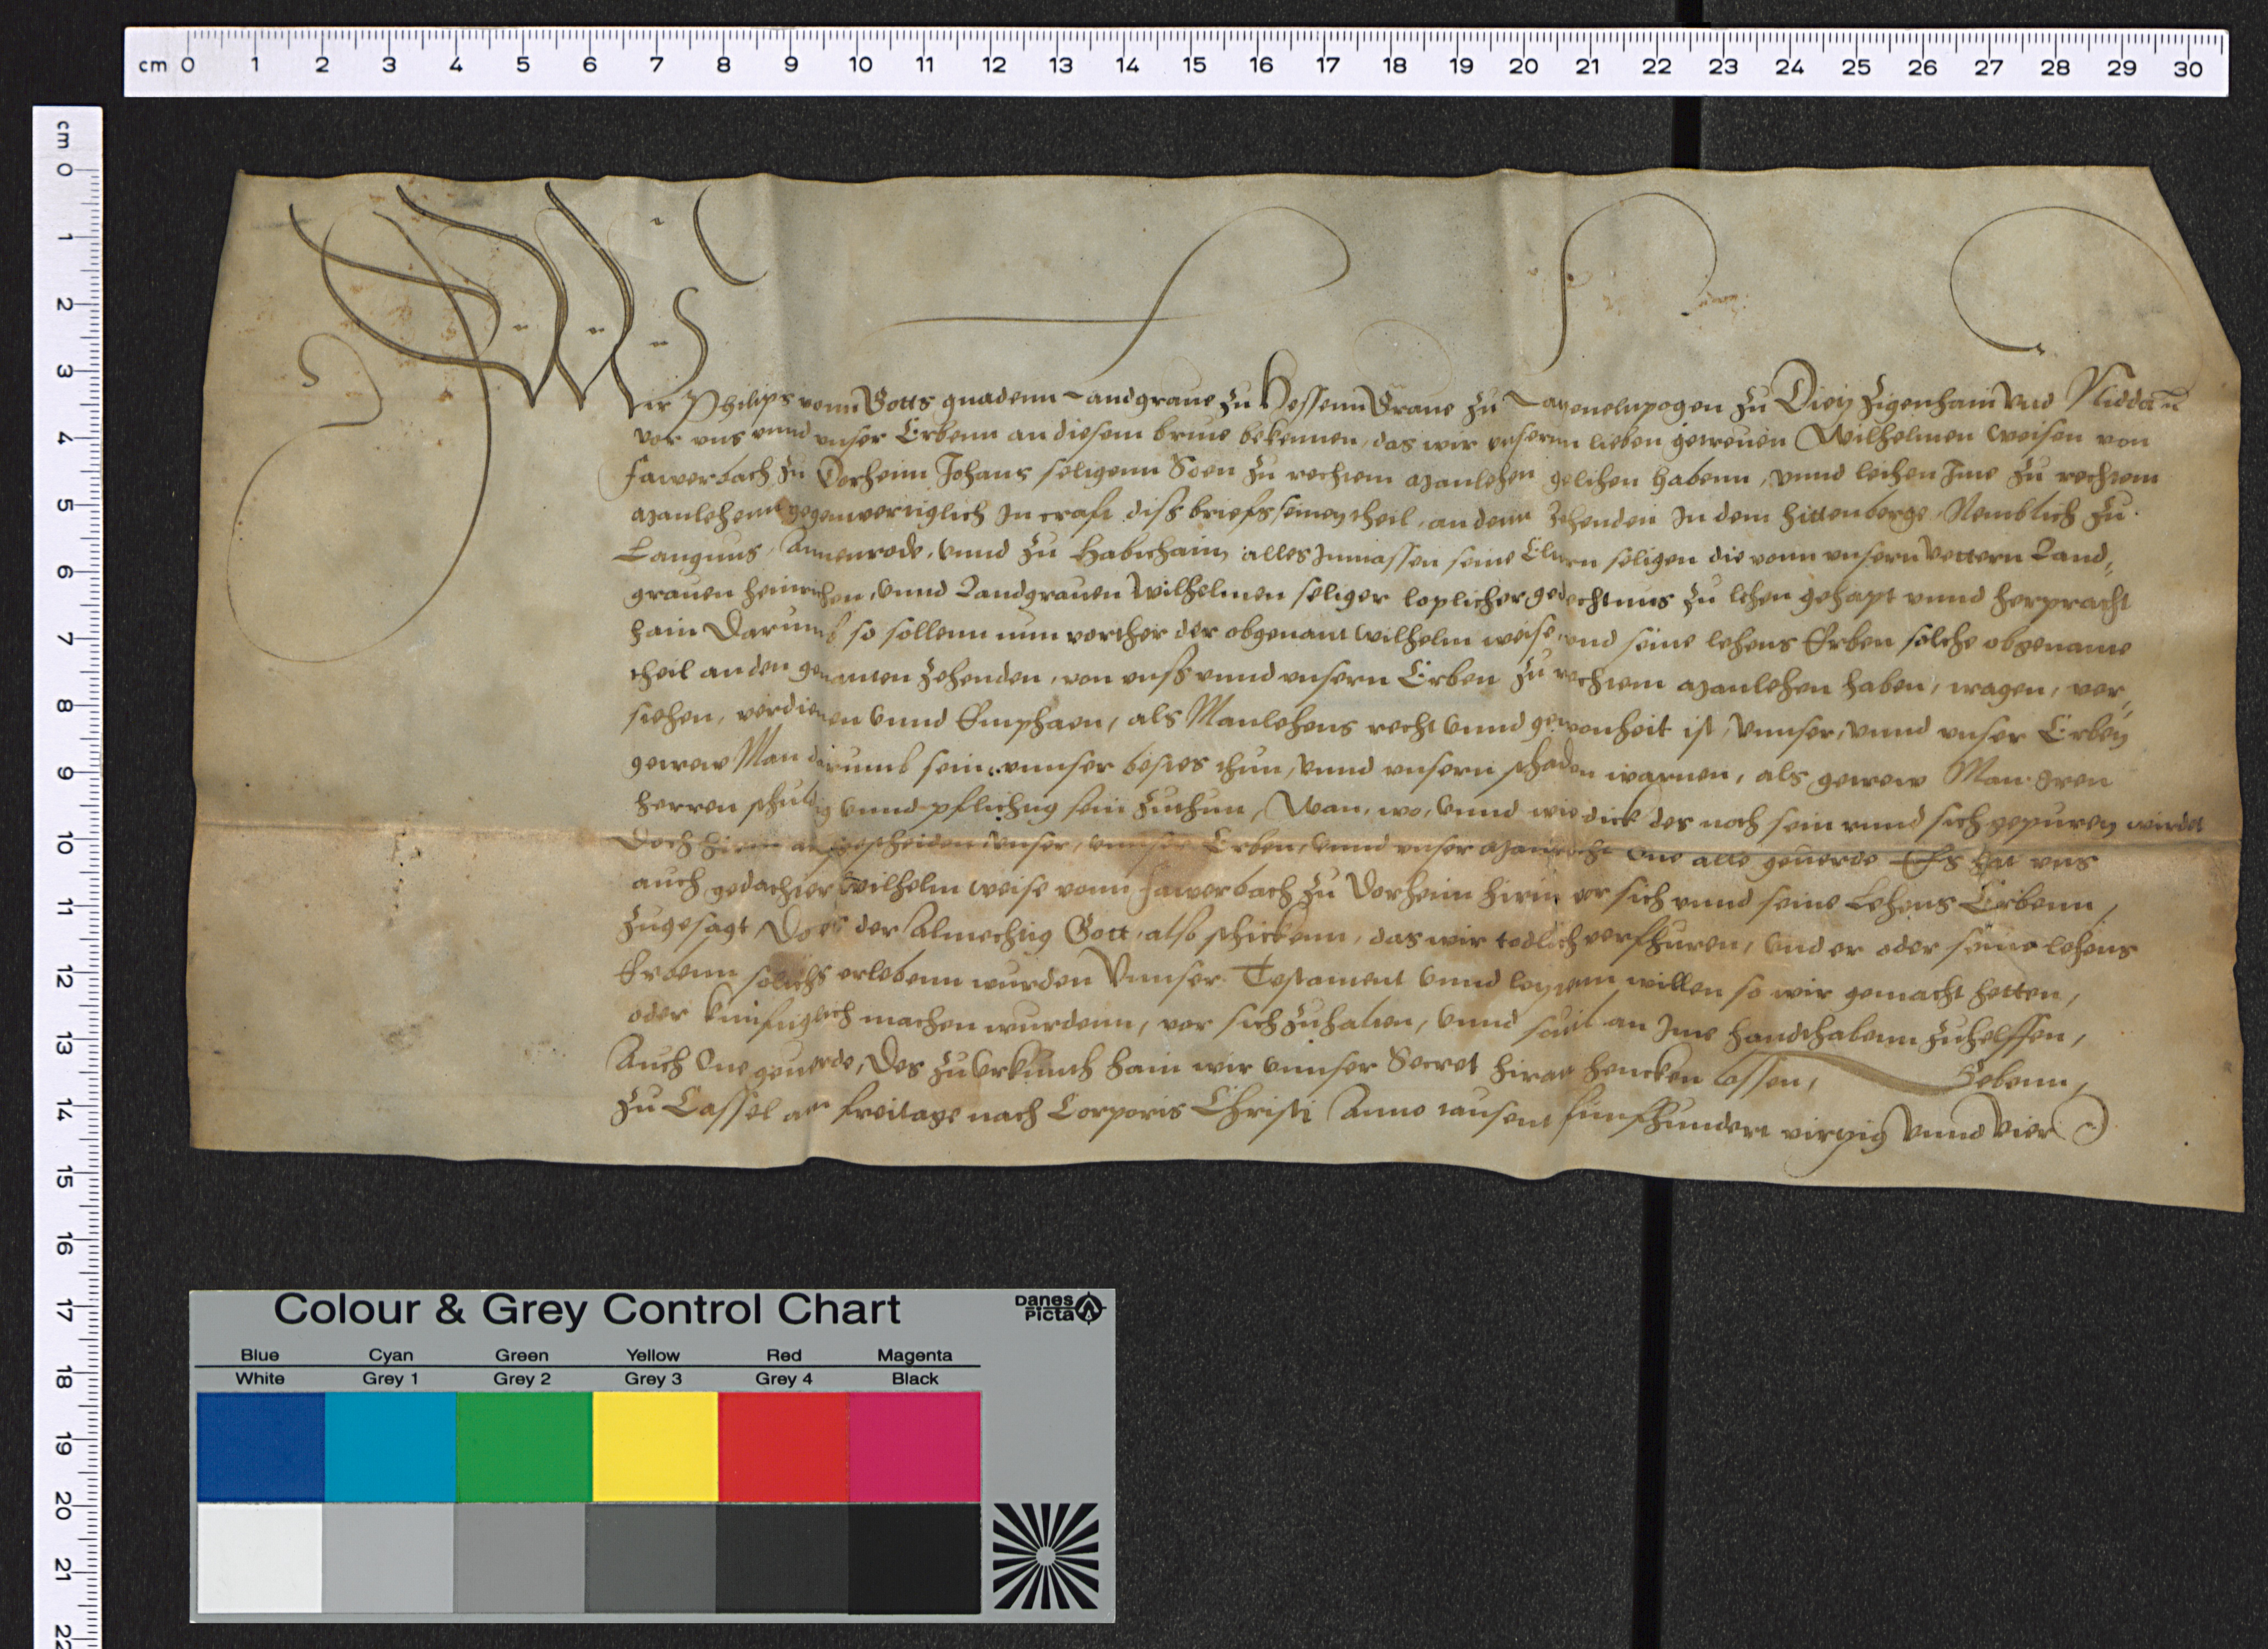 cm 0 1 2 3 4 5 6 7 8 9 10 11 12 13 14 15 16 17 18 19 20 21 22 23 24 25 26 27 28 29 30
cm 0 1 2 3 4 5 6 7 8 9 10 11 12 13 14 15 16 17 18 19 20 21 22
Wir Philips vonn Gotts gnadenn Landgraue zu Hessenn Graue zu Catzenelnpogen zu Dietz Zigenhain vnd Nidda
vor vns vnnd vnser Erbenn an diesem briue bekennen, das wir vnsernn lieben getreuen Wilhelmen Weisen von
Fawerbach zu Dorheim Johans seligenn Soen zu rechtem Manlehen gelihen habenn, vnnd leihen Ime zu rechtem
Manlehenn gegenwertiglich In craft diss briefs seinen theil, an denn Zehenden In dem Hittenberge, Nemblich zu
Langnus, Annenrode, vnnd zu Habichain, alles Inmassen seine Eltern seligen die vonn vnsern Vettern Land,
grauen Heinrichen, vnnd Landgrauen Wilhelmen seliger loplicher gedechtnus zu lehen gehapt vnnd herpracht
hain Darumb so sollenn nun vorther der obgenant Wilhelm Weise, vnd seine lehens Erben solche obgenante
theil an den genanten Zehenden, von vnss vnnd vnsern Erben zu rechtem Manlehen haben, tragen, ver,
stehen, verdienen vnnd Emphaen, als Manlehens recht vnnd gewonheit ist, Vnnser, vnnd vnser Erben
getrew Man darumb sein, vnnser bestes thun, vnnd vnsern schaden warnen, als getrew Man Iren
herren schuldig vnnd pflichtig sein zuthun, Wan, wo, vnnd wie dick des noth sein vnnd sich gepuren wirdet
Doch hirin ausgescheiden vnser, vnnser Erben, vnnd vnser Manrecht One alle geuerde Es hat vns
auch gedachter Wilhelm Weise vonn Fawerbach zu Dorheim hirin vor sich vnnd seine Lehens Erbenn,
zugesagt, Do es der Almechtig Gott, also schickenn, das wir todlich verfhuren, vnd er oder seine lehens
Erbenn solichs erlebenn wurden Vnnser Testament vnnd letztenn willen so wir gemacht hetten,
oder kunftiglich machen wurdenn, vor sich zuhalten, vnnd souil an Ime handthabenn zuhelffen,
Auch One geuerde, Des zu Vrkunth hain wir vnnser Secret hiran hencken lassen, Gebenn,
zu Cassel am Freitage nach Corporis Christi Anno tausent funffhundert virtzig vnnd vier
Colour & Grey Control Chart
Danes Picta
Blue Cyan Green Yellow Red Magenta
White Grey 1 Grey 2 Grey 3 Grey 4 Black